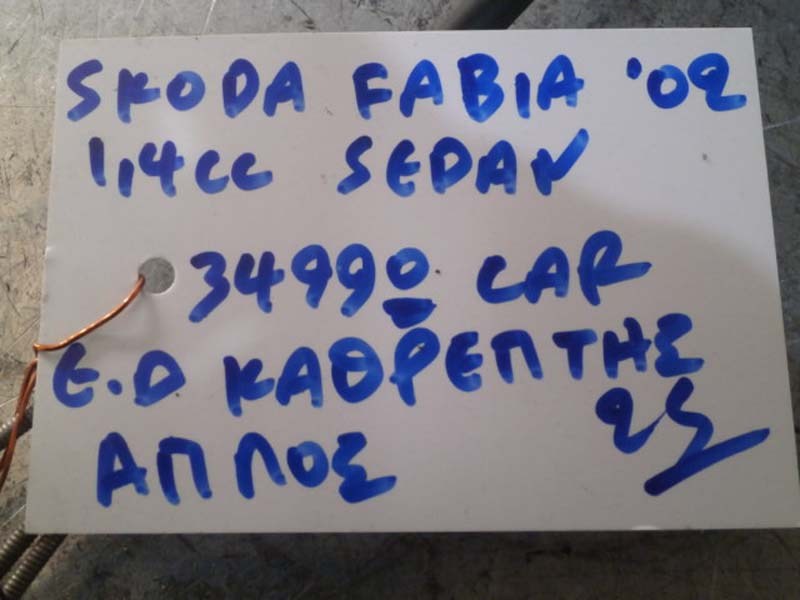 SKODA FABIA '02
1,4cc SEDAN
34990 CAR
E.D ΚΑΘΡΕΠΤΗΣ
ΑΠΛΟΣ 25